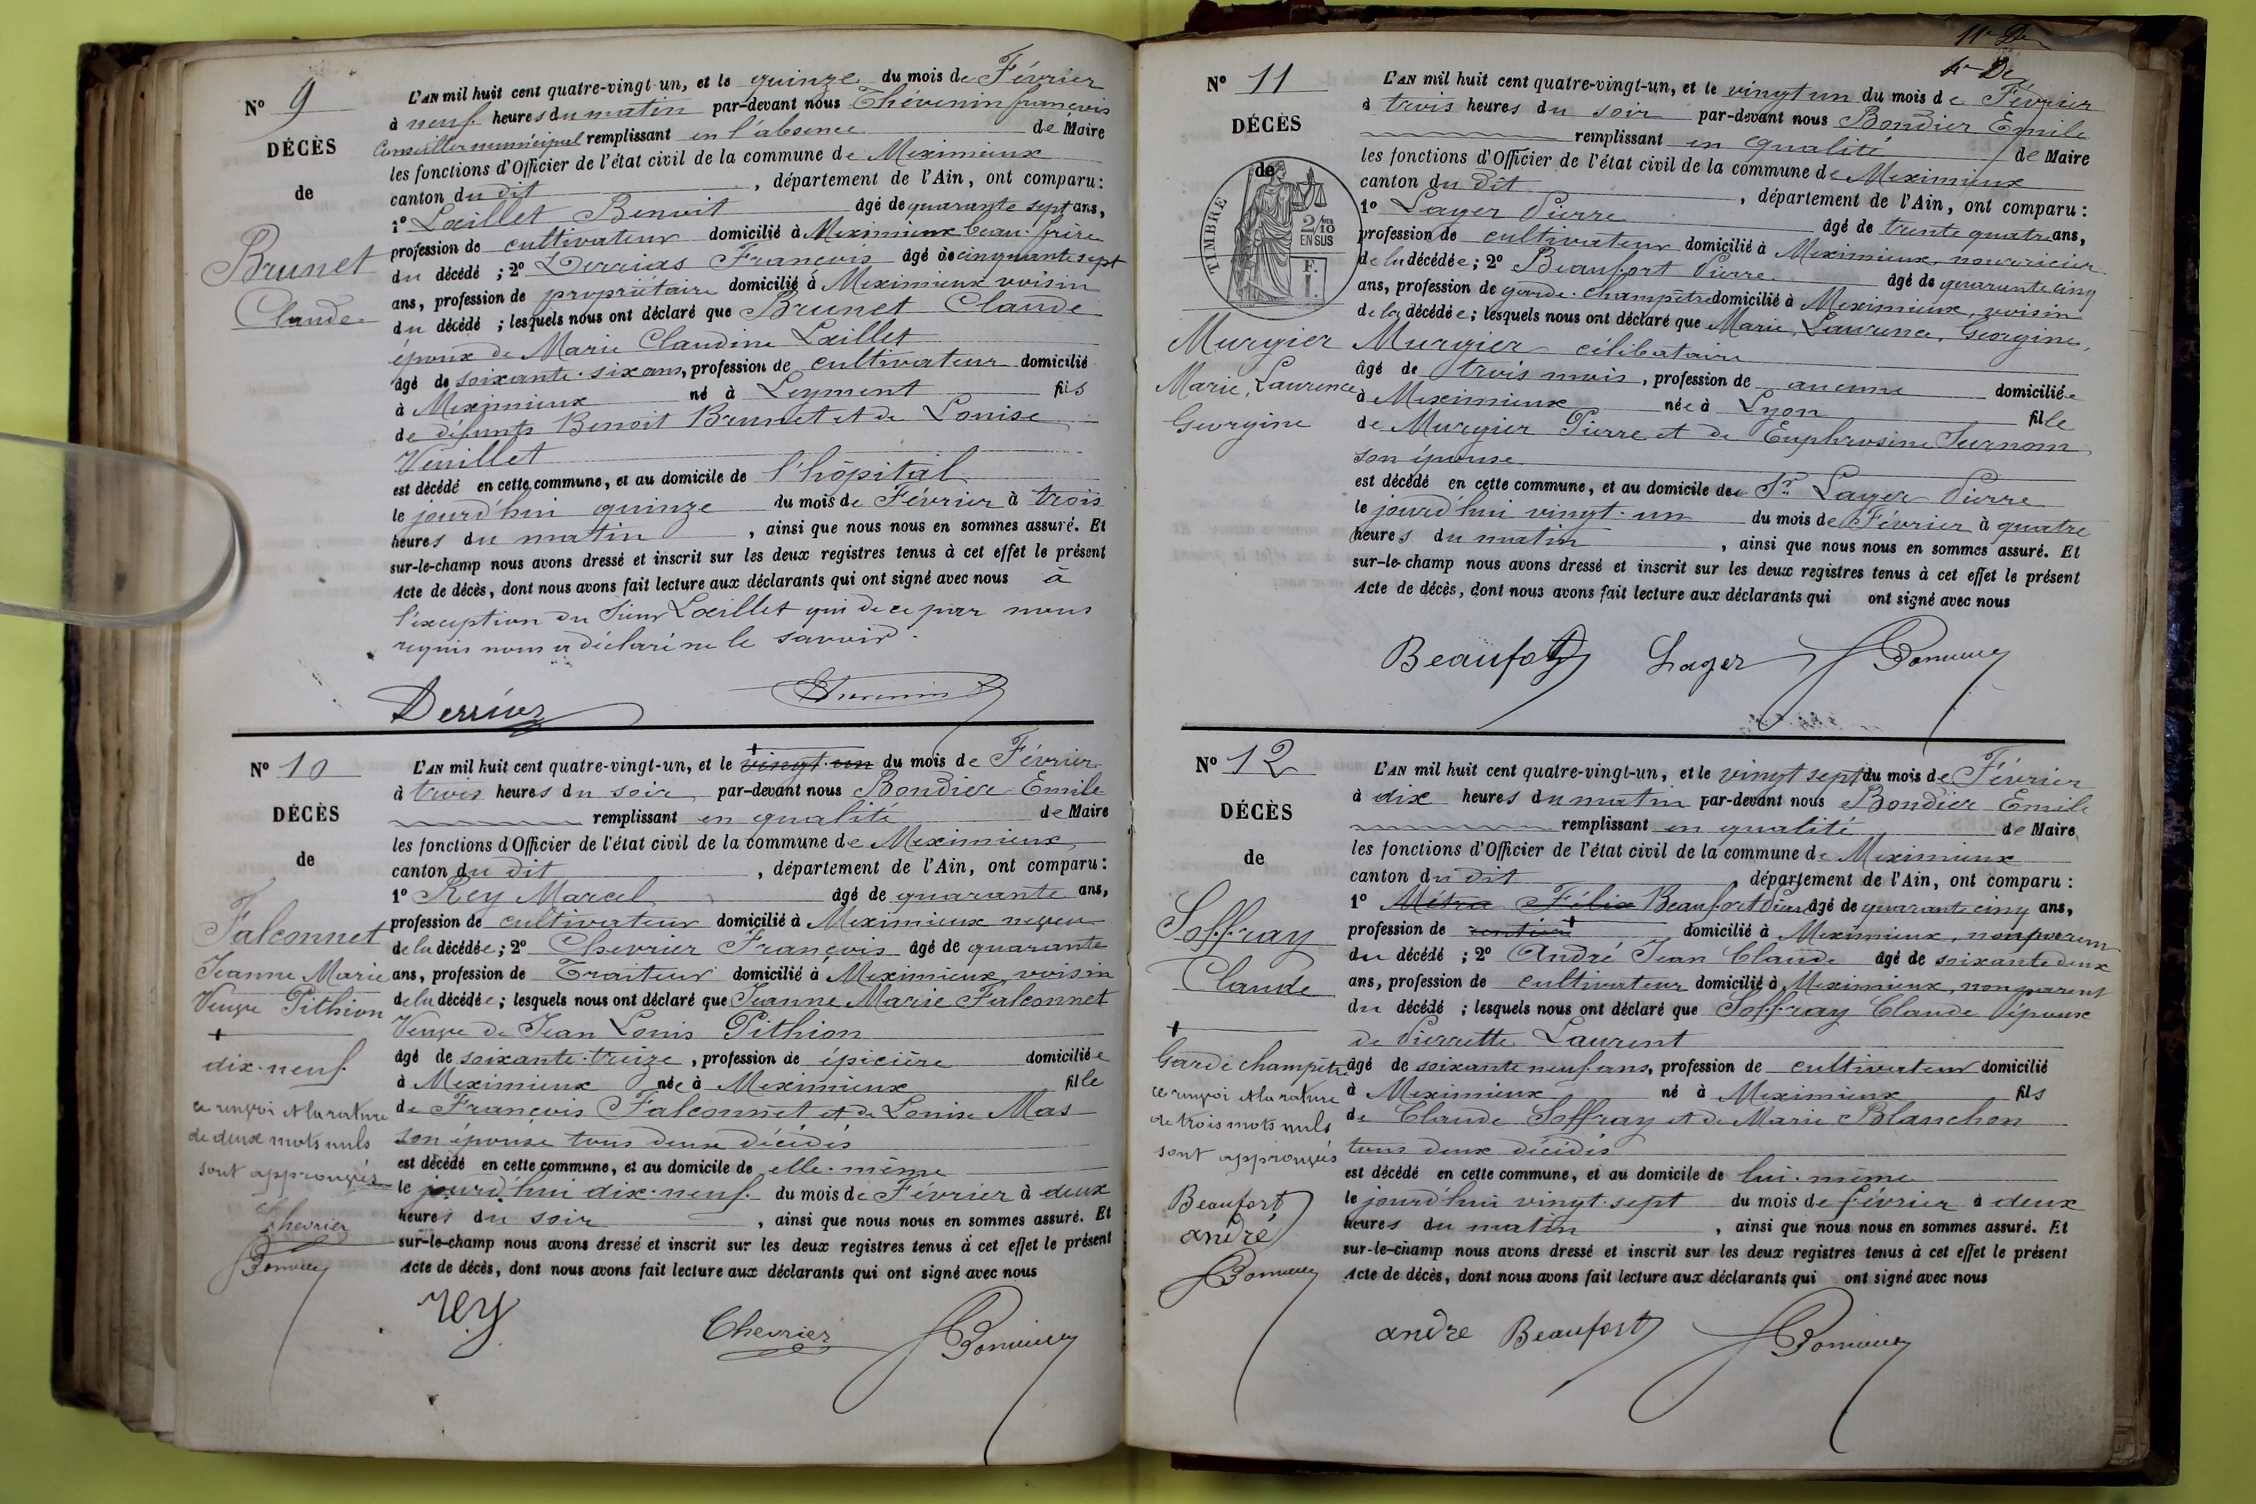 N° 9
DÉCÈS
de
Brunet
Claude
L'AN mil huit cent quatre-vingt-un, et le quinze du mois de Février
à neuf heures du matin par-devant nous Thévenin françois
Conseiller municipal remplissant en l'absence de Maire
les fonctions d'Officier de l'état civil de la commune de Meximieux
canton du dit , département de l'Ain, ont comparu:
1° Laillet Benoit âgé de quarante sept ans,
profession de cultivateur domicilié à Meximieux beau-frère
du décédé ; 2° Derrias François âgé de cinquante sept
ans, profession de propriétaire domicilié à Meximieux voisin
du décédé ; lesquels nous ont déclaré que Brunet Claude
époux de Marie Claudine Laillet
âgé de soixante-six ans, profession de cultivateur domicilié
à Meximieux né à Leyment fils
de défunts Benoit Brunet et de Louise
Veuillet
est décédé en cette commune, et au domicile de l'hôpital
le jourd'hui quinze du mois de Février à trois
heures du matin , ainsi que nous nous en sommes assuré. Et
sur-le-champ nous avons dressé et inscrit sur les deux registres tenus à cet effet le présent
Acte de décès, dont nous avons fait lecture aux déclarants qui ont signé avec nous à
l'exception du Sieur Laillet qui de ce par nous
requis nous a déclaré ne le savoir.
N° 10
DÉCÈS
de
Falconnet
Jeanne Marie
Veuve Pithion
dix-neuf
ce renvoi et la rature
de deux mots nuls
sont approuvés
Chevrier
L'AN mil huit cent quatre-vingt-un, et le vingt-un du mois de Février
à trois heures du soir par-devant nous Bondier Emile
remplissant en qualité de Maire
les fonctions d'Officier de l'état civil de la commune de Meximieux
canton du dit , département de l'Ain, ont comparu:
1° Rey Marcel âgé de quarante ans,
profession de cultivateur domicilié à Meximieux neveu
de la décédée; 2° Chevrier François âgé de quarante
ans, profession de Traiteur domicilié à Meximieux voisin
de la décédée; lesquels nous ont déclaré que Jeanne Marie Falconnet
Veuve de Jean Louis Pithion
âgé de soixante-treize, profession de épicière domiciliée
à Meximieux née à Meximieux fille
de François Falconnet et de Louise Mas
son épouse tous deux décédés
est décédé en cette commune, et au domicile de elle-même
le jourd'hui dix-neuf du mois de Février à deux
heures du soir , ainsi que nous nous en sommes assuré. Et
sur-le-champ nous avons dressé et inscrit sur les deux registres tenus à cet effet le présent
Acte de décès, dont nous avons fait lecture aux déclarants qui ont signé avec nous
rey Chevrier
N° 11
DÉCÈS
de
TIMBRE
2/10
EN SUS
F.
I.
Murgier
Marie, Laurence
Georgine
L'AN mil huit cent quatre-vingt-un, et le vingt un du mois de Février
à trois heures du soir par-devant nous Bondier Emile
remplissant en qualité de Maire
les fonctions d'Officier de l'état civil de la commune de Meximieux
canton du dit , département de l'Ain, ont comparu:
1° Lager Pierre âgé de trente quatre ans,
profession de cultivateur domicilié à Meximieux, nourricier
de la décédée; 2° Beaufort Pierre âgé de quarante cinq
ans, profession de garde-champêtre domicilié à Meximieux, voisin
de la décédée; lesquels nous ont déclaré que Marie, Laurence, Georgine,
Murgier célibataire
âgé de trois mois, profession de aucune domiciliée
à Meximieux née à Lyon fille
de Murgier Pierre et de Euphrosine Surnom
son épouse
est décédé en cette commune, et au domicile de Sr Lager Pierre
le jourd'hui vingt-un du mois de Février à quatre
heures du matin , ainsi que nous nous en sommes assuré. Et
sur-le-champ nous avons dressé et inscrit sur les deux registres tenus à cet effet le présent
Acte de décès, dont nous avons fait lecture aux déclarants qui ont signé avec nous
Beaufort Lager
N° 12
DÉCÈS
de
Soffray
Claude
Garde champêtre
ce renvoi et la rature
de trois mots nuls
sont approuvés
Beaufort
andré
L'AN mil huit cent quatre-vingt-un, et le vingt sept du mois de Février
à dix heures du matin par-devant nous Bondier Emile
remplissant en qualité de Maire
les fonctions d'Officier de l'état civil de la commune de Meximieux
canton du dit , département de l'Ain, ont comparu:
1° Métra Félix Beaufort Pierre âgé de quarante cinq ans,
profession de rentier domicilié à Meximieux, non parent
du décédé ; 2° André Jean Claude âgé de soixante deux
ans, profession de cultivateur domicilié à Meximieux, non parent
du décédé ; lesquels nous ont déclaré que Soffray Claude époux
de Pierrette Laurent
âgé de soixante neuf ans, profession de cultivateur domicilié
à Meximieux né à Meximieux fils
de Claude Soffray et de Marie Blanchon
tous deux décédés
est décédé en cette commune, et au domicile de lui-même
le jourd'hui vingt-sept du mois de février à deux
heures du matin , ainsi que nous nous en sommes assuré. Et
sur-le-champ nous avons dressé et inscrit sur les deux registres tenus à cet effet le présent
Acte de décès, dont nous avons fait lecture aux déclarants qui ont signé avec nous
andré Beaufort